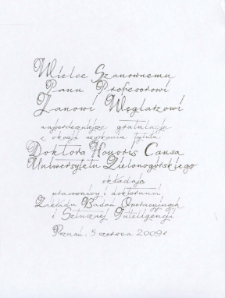 Wielce Szanownemu
Panu Profesorowi
Janowi Węglarzowi
najserdeczniejsze gratulacje
z okazji uzyskania tytułu
Doktora Honoris Causa
Uniwersytetu Zielonogórskiego
składają
pracownicy i doktoranci
Zakładu Badań Operacyjnych
i Sztucznej Inteligencji
Poznań, 5 czerwca 2009r.